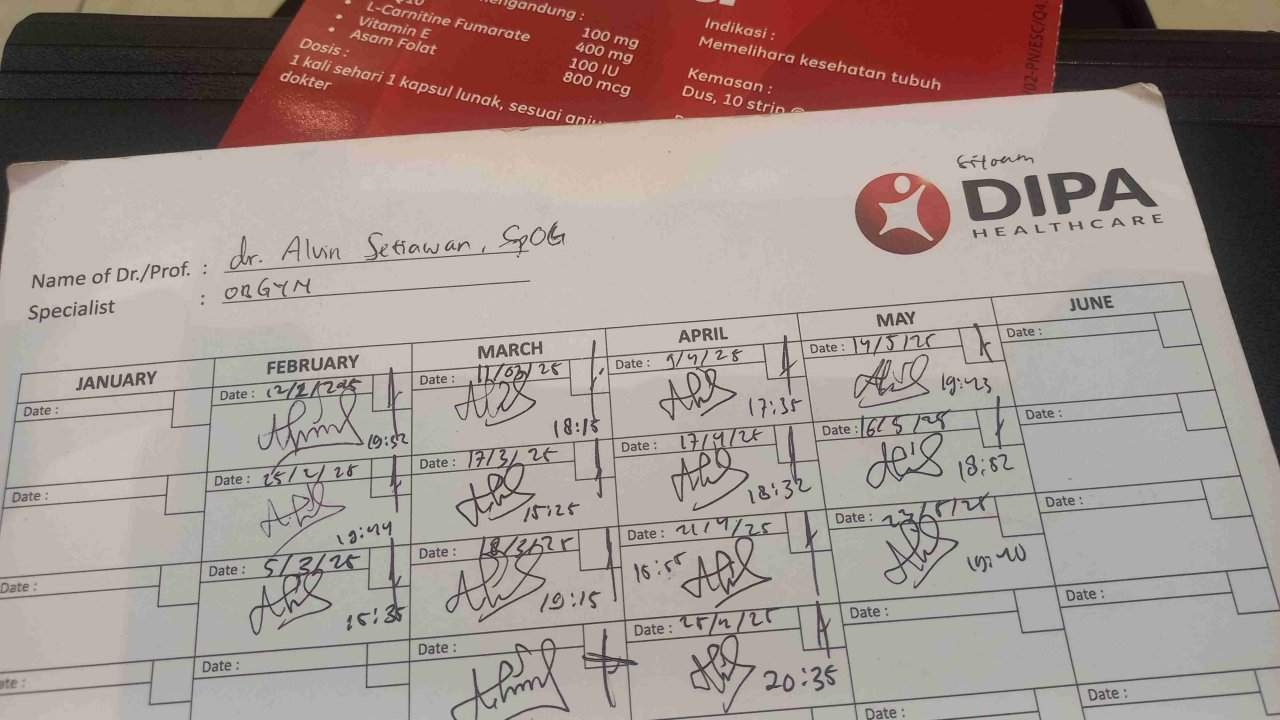 L-Carnitine Fumarate
Vitamin E
Asam Folat
100 mg
400 mg
100 IU
800 mcg
Dosis :
1 kali sehari 1 kapsul lunak, sesuai
dokter
Indikasi :
Memelihara kesehatan tubuh
Kemasan :
Dus, 10 strip @
DIPA
HEALTHCARE
Name of Dr./Prof. : dr. Alvin Setiawan, SpOG
Specialist : OBGYN
JANUARY FEBRUARY MARCH APRIL MAY JUNE
Date : Date : 12/2/2025 Date : 11/03/25 Date : 9/4/25 Date : 14/5/25 Date :
19:52 18:15 17:35 19:43
Date : Date : 25/2/25 Date : 17/3/25 Date : 17/4/25 Date : 16/5/25 Date :
19:44 15:25 18:32 18:52
Date : Date : 5/3/25 Date : 18/3/25 Date : 21/4/25 Date : 23/5/25 Date :
15:35 19:15 15:55 19:40
Date : Date : Date : Date : 25/4/25 Date : Date :
20:35
Date :